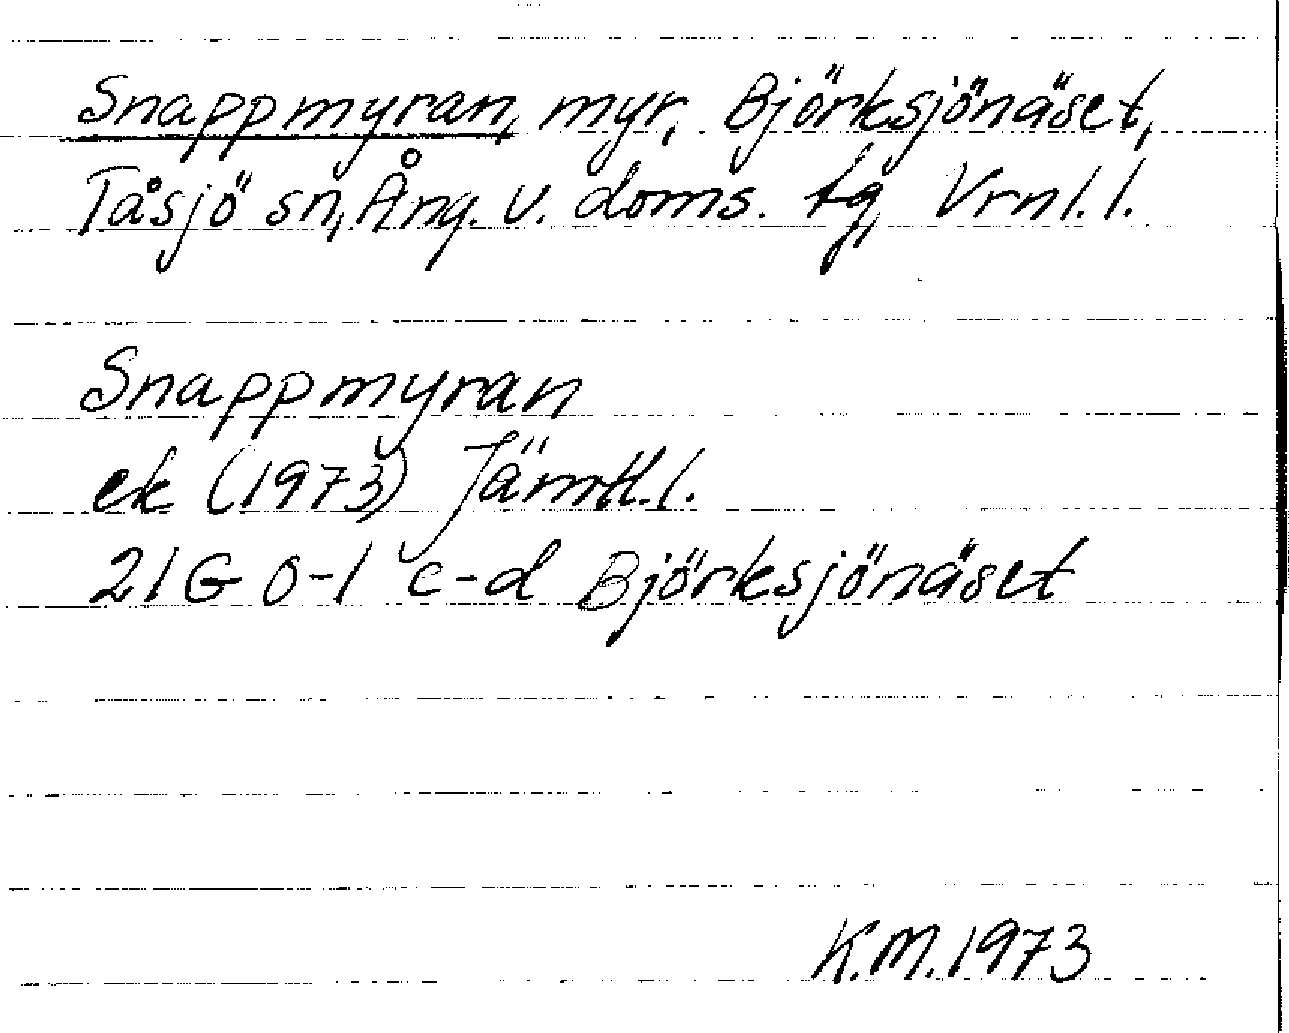 Snappmyran, myr, Björksjönäset,
Tåsjö sn, Ång. v. doms. tg, Vrnl. l.
Snappmyran
ek (1973) Jämtl. l.
21G 0-1 c-d Björksjönäset
K.M. 1973